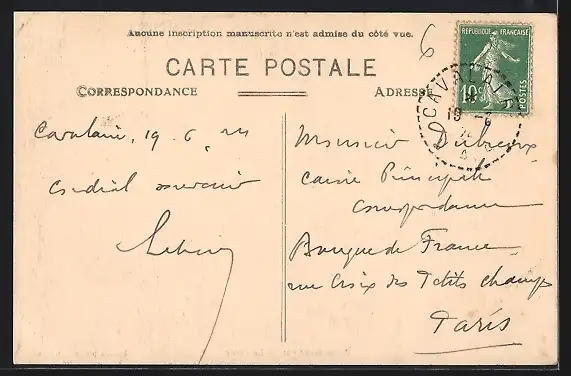 Aucune inscription manuscrite n'est admise du côté vue.
6
CARTE POSTALE
CORRESPONDANCE
ADRESSE
REPUBLIQUE FRANÇAISE
10c
POSTES
CAVALAIRE
19 -6
Cavalaire, 19. 6.
Cordial souvenir
Monsieur
Caisse Principale
Correspondance
Banque de France
rue Croix des Petits champs
Paris